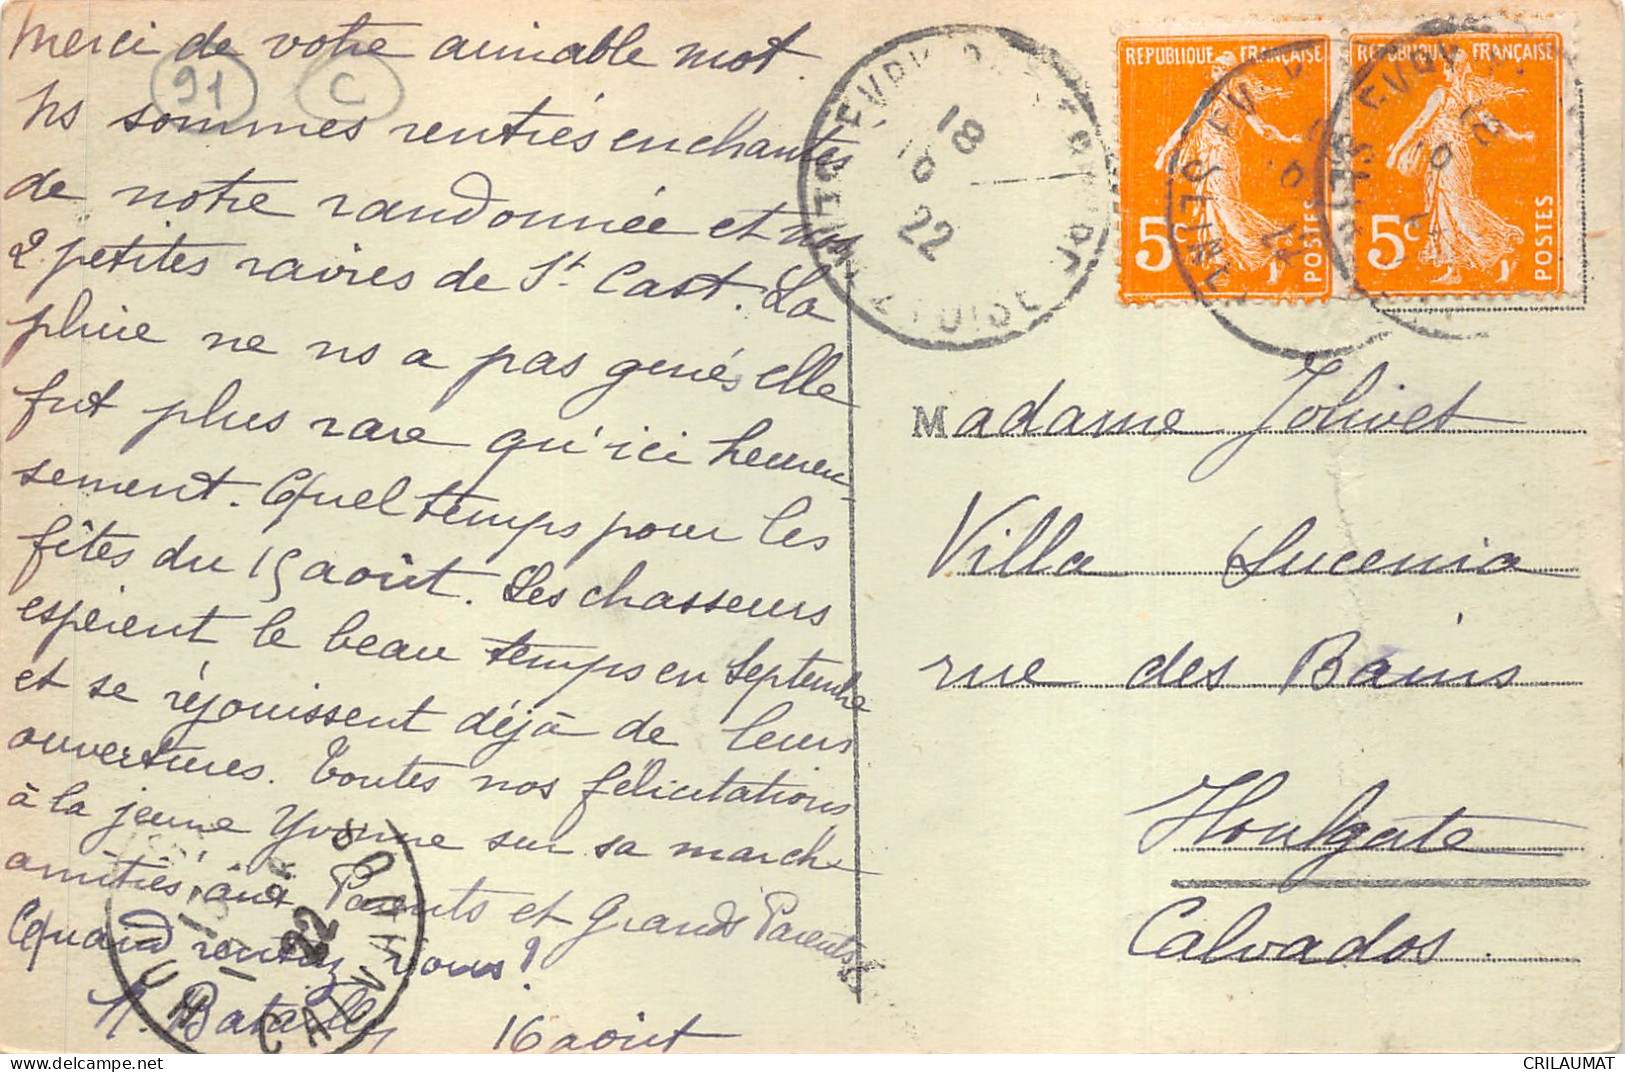 Merci de votre aimable mot.
91 C
Ns sommes rentrés enchantés
de notre randonnée et ns
2 petites ravies de St Cast. La
pluie ne ns a pas genés elle
fut plus rare qu'ici heureu-
sement. Quel temps pour les
fêtes du 15 août. Les chasseurs
espèrent le beau temps en Septembre
et se réjouissent déjà de leurs
ouvertures. Toutes nos félicitations
à la jeune Yvonne sur sa marche
amitiés aux Parents et Grands Parents
Quand rentrez vous?
Bataille
16 août
EVRY
SEINE & OISE
18
8
22
REPUBLIQUE FRANÇAISE
5c
POSTES
REPUBLIQUE FRANÇAISE
5c
POSTES
Madame Jolivet
Villa Lucenia
rue des Bains
Houlgate
Calvados
CALVADOS
22
CRILAUMAT